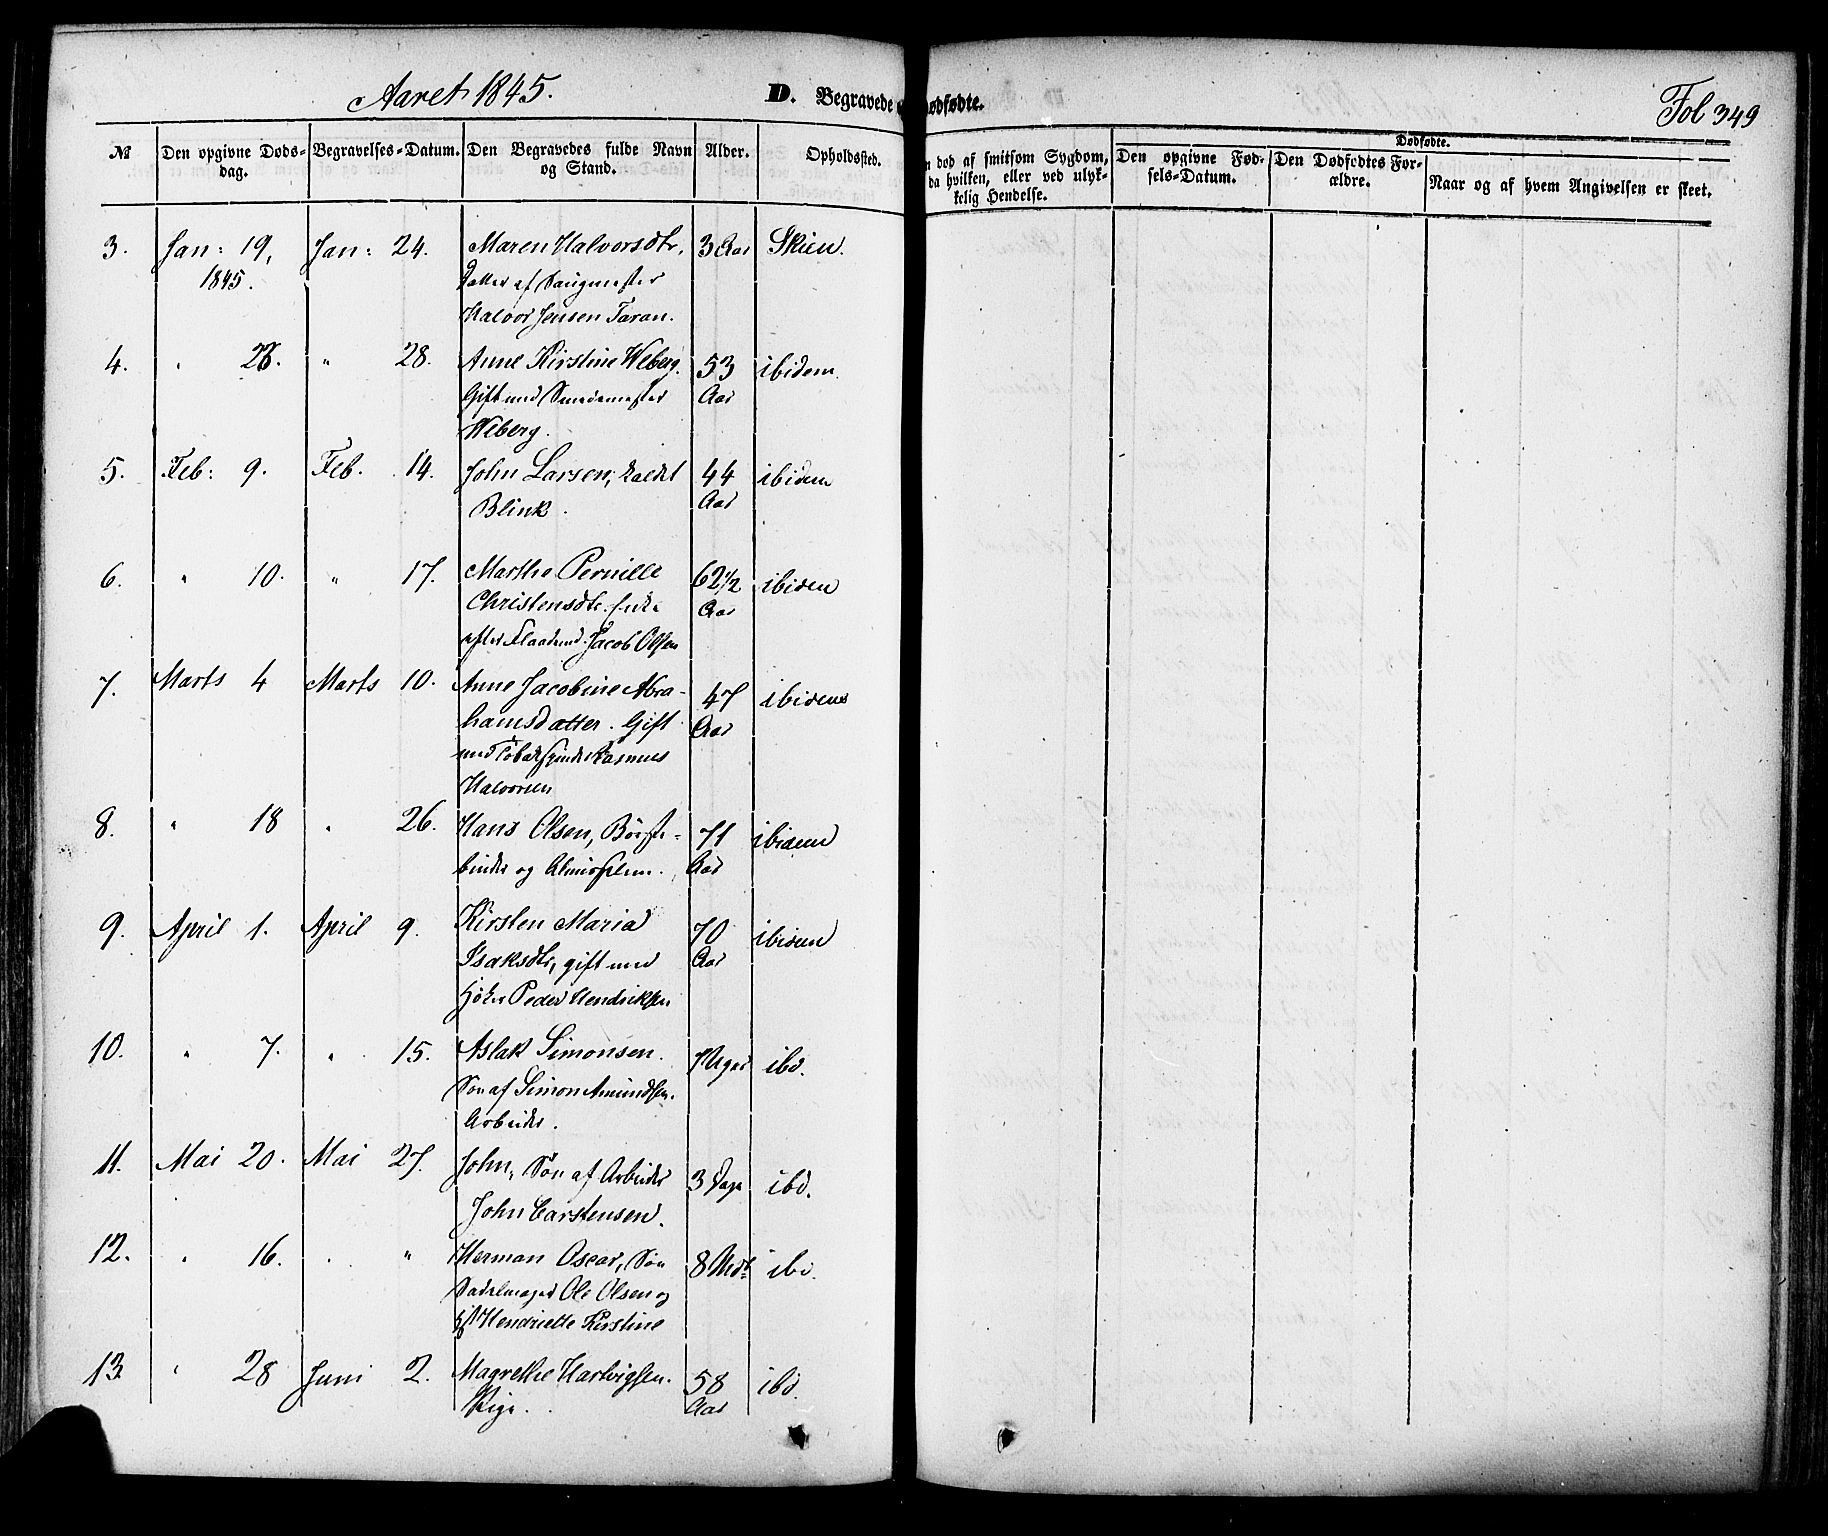 Aaret 1845.
D. Begravede
ødfødte.
Fol 349
№
Den opgivne Døds-
dag.
Begravelses-Datum.
Den Begravedes fulde Navn
og Stand.
Alder.
Opholdsted.
n død af smitsom Sygdom,
da hvilken, eller ved ulyk-
kelig Hendelse.
Dødfødte.
Den opgivne Fød-
sels-Datum.
Den Dødfødtes For-
ældre.
Naar og af hvem Angivelsen er skeet.
3. Jan: 19, Jan: 24. Maren Halvorsdtr. 3 Aar Skien.
1845. Datter af Saugmester
Halvor Jensen Faran.
4. " 26. " 28. Anne Kirstine Weberg. 53 ibidem.
Gift med Smedemester Aar
Weberg.
5. Feb: 9. Feb. 14. John Larsen, kaldet 44 ibidem
Blink. Aar
6. " 10. " 17. Marthe Pernille 62 1/2 ibidem
Christensdtr. Enke Aar
efter Jacob Olsen
7. Marts 4 Marts 10. Anne Jacobine Abra- 47 ibidem
hamsdatter. Gift Aar
med Rasmus
Halvorsen
8. " 18 " 26. Hans Olsen, Børste- 71 ibidem
binder og Almisselem. Aar
9. April 1. April 9. Kirsten Maria 70 ibidem
Isaksdtr, gift med Aar
Høker Peder Hendriksen
10. " 7. " 15. Aslak Simonsen. Uger ibd.
Søn af Simon Amundsen.
Arbeider.
11. Mai 20. Mai 27. John, Søn af Arbeider 3 Dage ibd.
John Carstensen.
12. " 16. " Herman Oscar, Søn 8 Mdr ibd.
Sadelmager Ole Olsen og
Hendriette Kirstine
13. " 28 Juni 2. Magrethe Hartvigsen. 58 ibd.
Pige. Aar